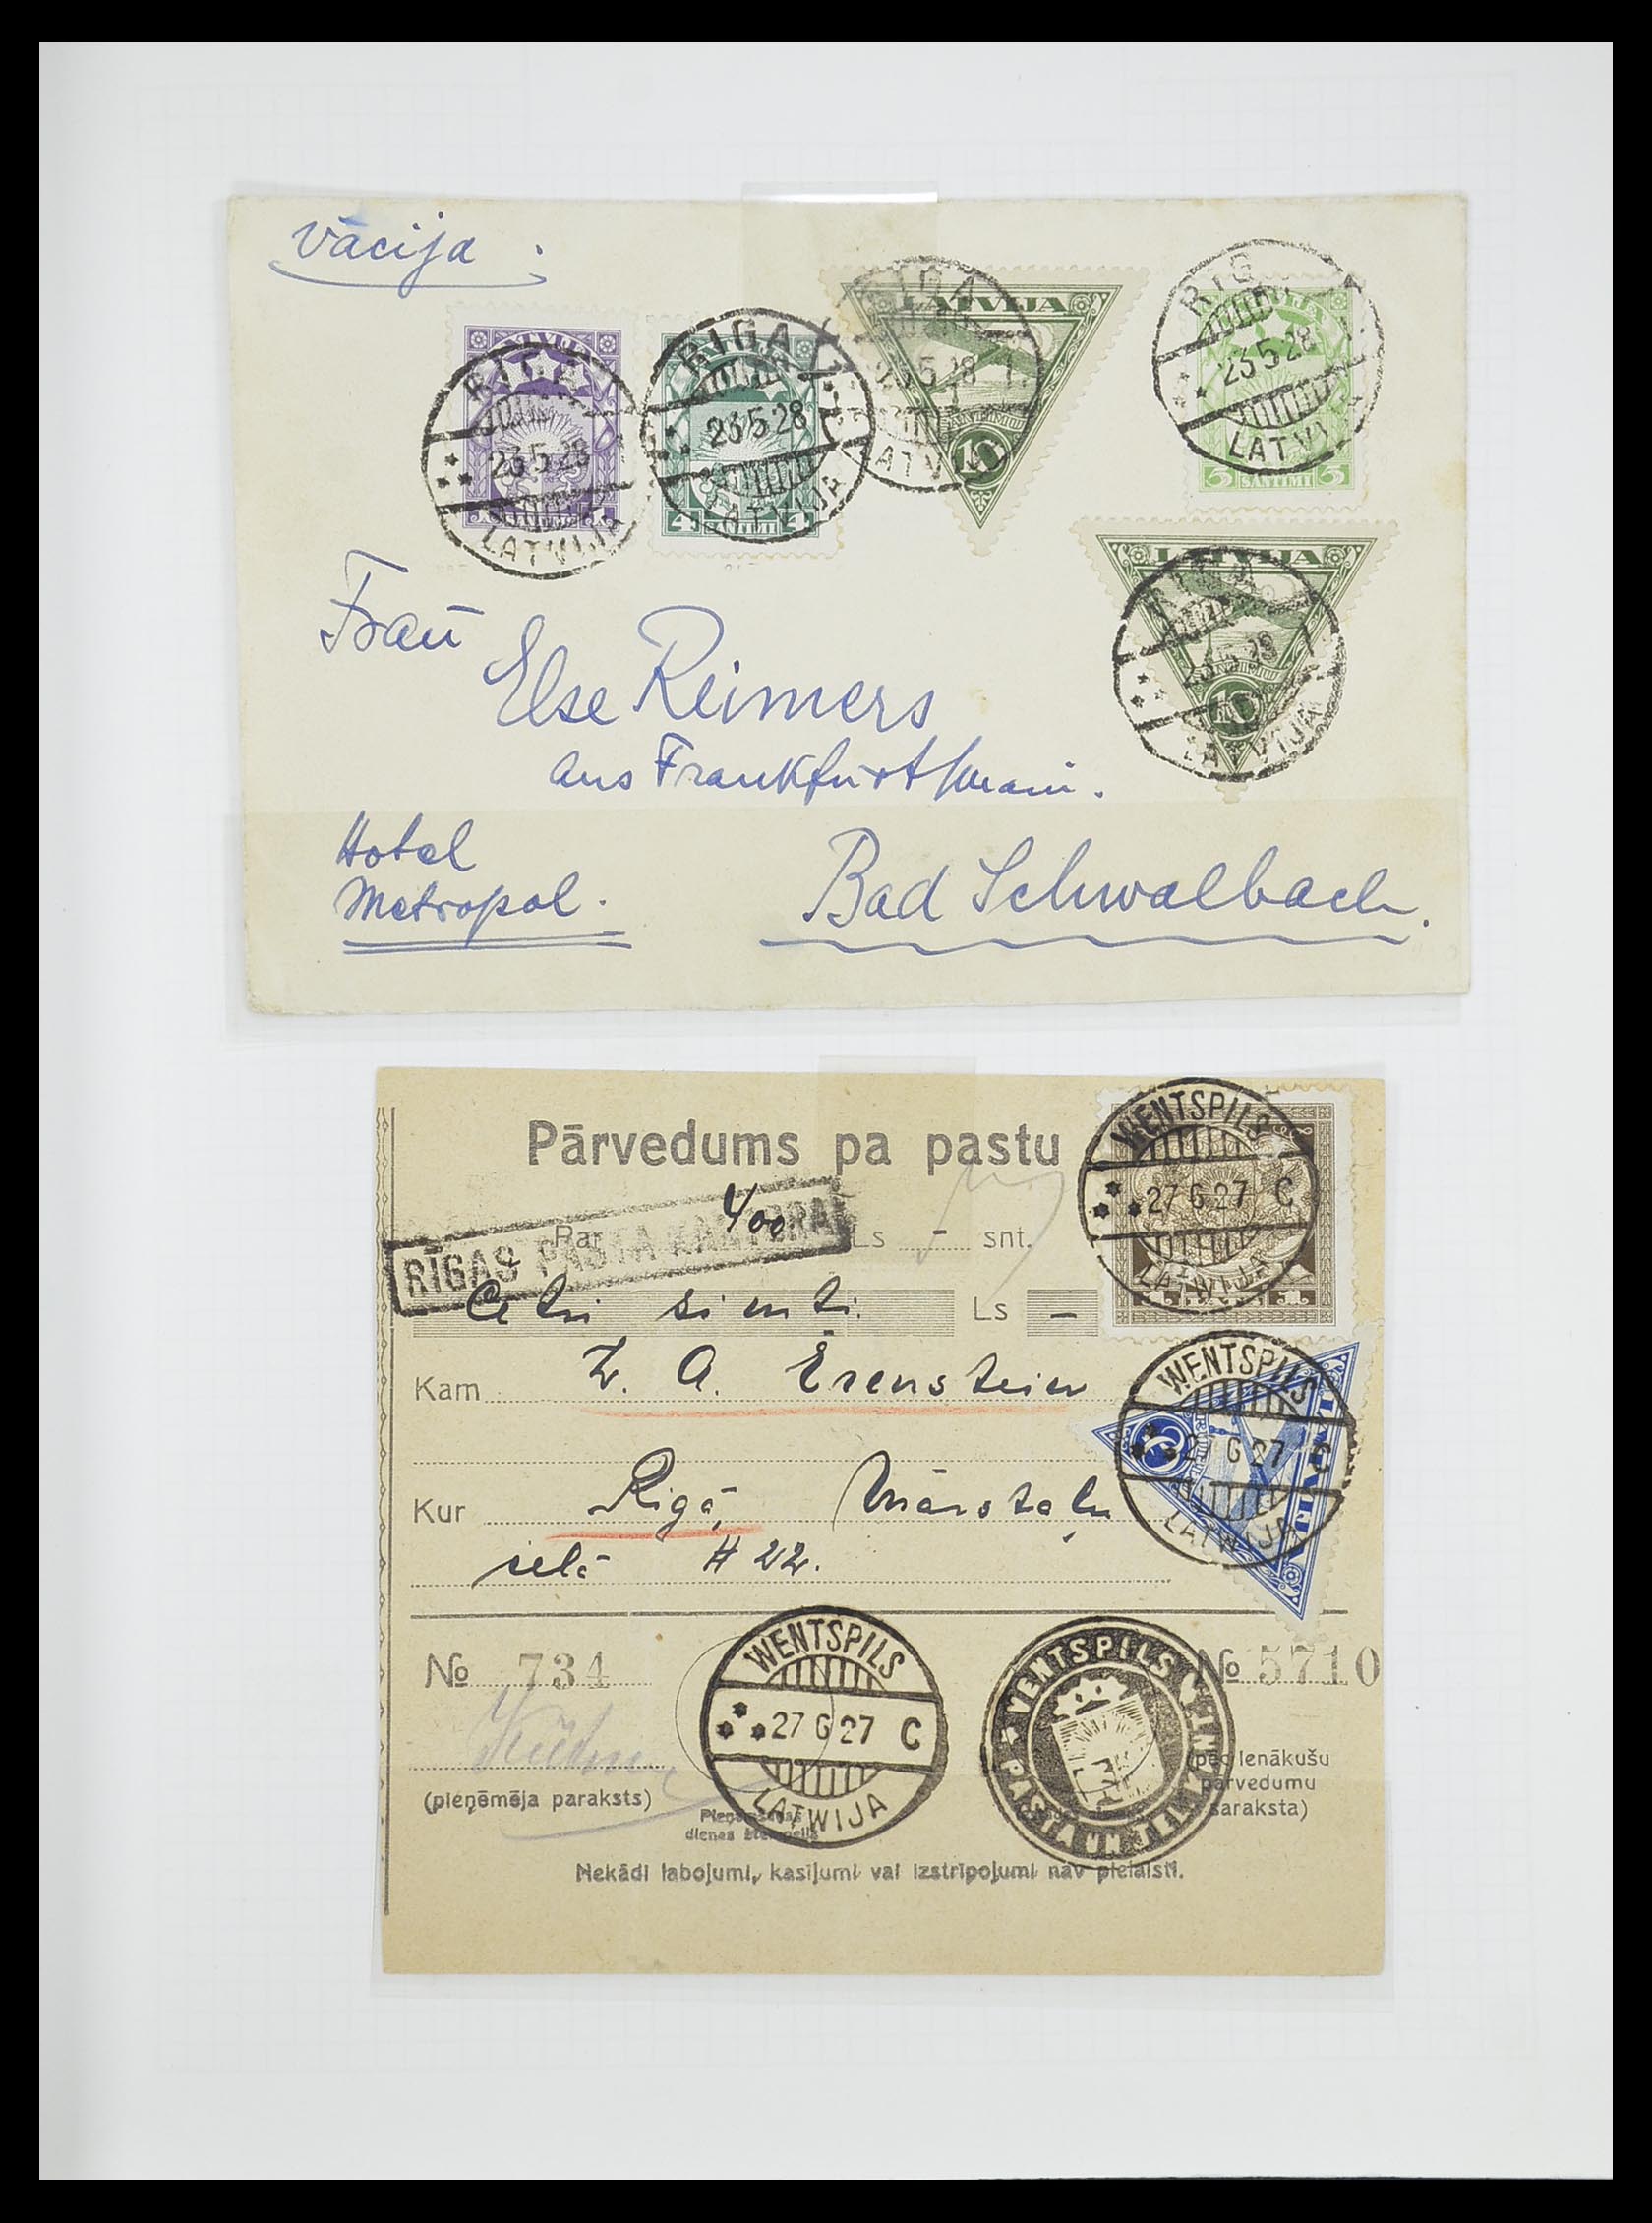 Vācija
RIGA
23.5.28
LATVIJA
RIGA
23.5.28
LATVIJA
4 SANTIMI 4
LATVIJA
RIGA
23.5.28
LATVIJA
10
RIGA
23.5.28
LATVIJA
5 SANTIMI 5
LATVIJA
23.5.28
LATVIJA
10
Frau
Else Reimers
aus Frankfurt/Main.
Hotel
Metropol.
Bad Schwalbach.
Pārvedums pa pastu
WENTSPILS
27 6 27 C
LATWIJA
Par 400 Ls – snt.
RĪGAS PASTA KANTORA
Četri simti Ls –
Kam Z. A. Erenstein
WENTSPILS
27 6 27 C
LATWIJA
LATVIJA
Kur Rīgā, Mārstaļu
ielā # 22.
No 734
WENTSPILS
27 6 27 C
LATWIJA
VENTSPILS
PASTA UN TEL
No 5710
(pieņēmēja paraksts)
dienas štempelis
(pēc ienākušu
pārvedumu
saraksta)
Nekādi labojumi, kasījumi vai izstrīpojumi nav pielaisti.